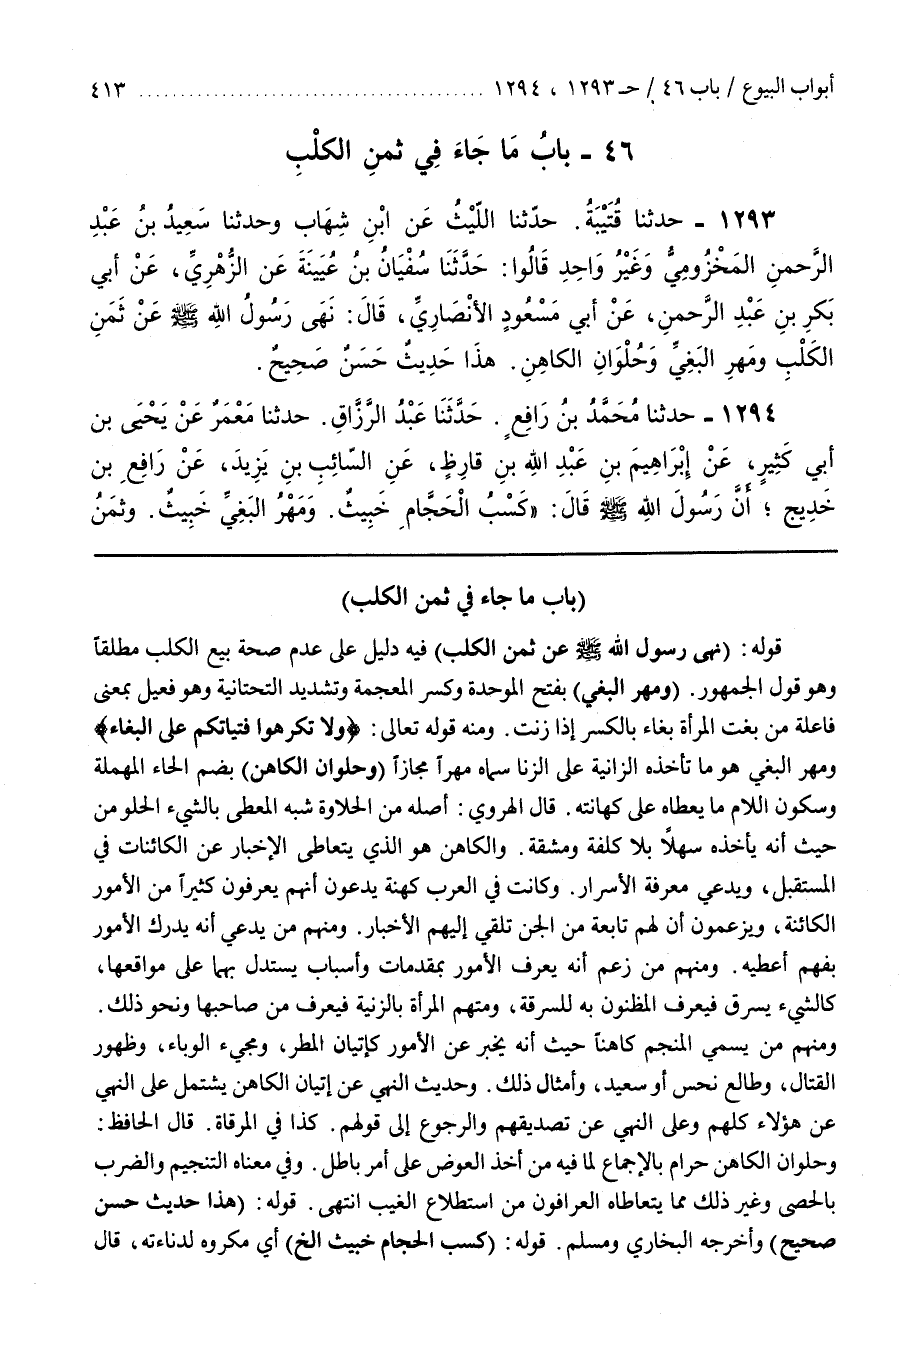 أبواب البيوع / باب ٤٦ / حـ ١٢٩٣ ، ١٢٩٤ ........................................ ٤١٣
٤٦ - بابُ مَا جَاءَ فِي ثمنِ الكلْبِ
١٢٩٣ - حدثنا قُتَيْبَةُ. حدّثنا اللّيْثُ عَن ابْنِ شِهَاب وحدثنا سَعِيدُ بنُ عَبْدِ
الرَّحمنِ المَخْزُومِيُّ وَغَيْرُ وَاحِدٍ قَالُوا: حَدَّثَنَا سُفْيَانُ بنُ عُيَينَةَ عَن الزُّهْرِيِّ، عَنْ أبي
بَكرِ بنِ عَبْدِ الرَّحمنِ، عَنْ أبي مَسْعُودٍ الأنْصَارِيِّ، قَالَ: نَهَى رَسُولُ اللهِ ﷺ عَنْ ثَمَنِ
الكَلْبِ ومَهرِ البَغِيِّ وَحُلْوَانِ الكاهنِ. هذَا حَدِيثٌ حَسَنٌ صَحِيحٌ.
١٢٩٤ - حدثنا مُحَمَّدُ بنُ رَافِعٍ. حَدَّثَنَا عَبْدُ الرَّزَّاقِ. حدثنا مَعْمَرٌ عَنْ يَحْيَى بن
أبي كَثِيرٍ، عَنْ إِبْرَاهِيمَ بنِ عَبْدِ اللهِ بنِ قارِظٍ، عَنِ السّائِبِ بنِ يَزِيدَ، عَنْ رَافِعِ بن
خَدِيج ؛ أَنَّ رَسُولَ اللهِ ﷺ قَالَ: «كَسْبُ الْحَجَّامِ خَبِيثٌ. وَمَهْرُ البَغِيِّ خَبِيثٌ. وثمَنُ
(باب ما جاء في ثمن الكلب)
قوله: (نهى رسول الله ﷺ عن ثمن الكلب) فيه دليل على عدم صحة بيع الكلب مطلقاً
وهو قول الجمهور. (ومهر البغي) بفتح الموحدة وكسر المعجمة وتشديد التحتانية وهو فعيل بمعنى
فاعلة من بغت المرأة بغاء بالكسر إذا زنت. ومنه قوله تعالى: ﴿ولا تكرهوا فتياتكم على البغاء﴾
ومهر البغي هو ما تأخذه الزانية على الزنا سماه مهراً مجازاً (وحلوان الكاهن) بضم الحاء المهملة
وسكون اللام ما يعطاه على كهانته. قال الهروي: أصله من الحلاوة شبه المعطى بالشيء الحلو من
حيث أنه يأخذه سهلاً بلا كلفة ومشقة. والكاهن هو الذي يتعاطى الإخبار عن الكائنات في
المستقبل، ويدعي معرفة الأسرار. وكانت في العرب كهنة يدعون أنهم يعرفون كثيراً من الأمور
الكائنة، ويزعمون أن لهم تابعة من الجن تلقي إليهم الأخبار. ومنهم من يدعي أنه يدرك الأمور
بفهم أعطيه. ومنهم من زعم أنه يعرف الأمور بمقدمات وأسباب يستدل بها على مواقعها،
كالشيء يسرق فيعرف المظنون به للسرقة، ومتهم المرأة بالزنية فيعرف من صاحبها ونحو ذلك.
ومنهم من يسمي المنجم كاهناً حيث أنه يخبر عن الأمور كإتيان المطر، ومجيء الوباء، وظهور
القتال، وطالع نحس أو سعيد، وأمثال ذلك. وحديث النهي عن إتيان الكاهن يشتمل على النهي
عن هؤلاء كلهم وعلى النهي عن تصديقهم والرجوع إلى قولهم. كذا في المرقاة. قال الحافظ:
وحلوان الكاهن حرام بالإجماع لما فيه من أخذ العوض على أمر باطل. وفي معناه التنجيم والضرب
بالحصى وغير ذلك مما يتعاطاه العرافون من استطلاع الغيب انتهى. قوله: (هذا حديث حسن
صحيح) وأخرجه البخاري ومسلم. قوله: (كسب الحجام خبيث الخ) أي مكروه لدناءته، قال